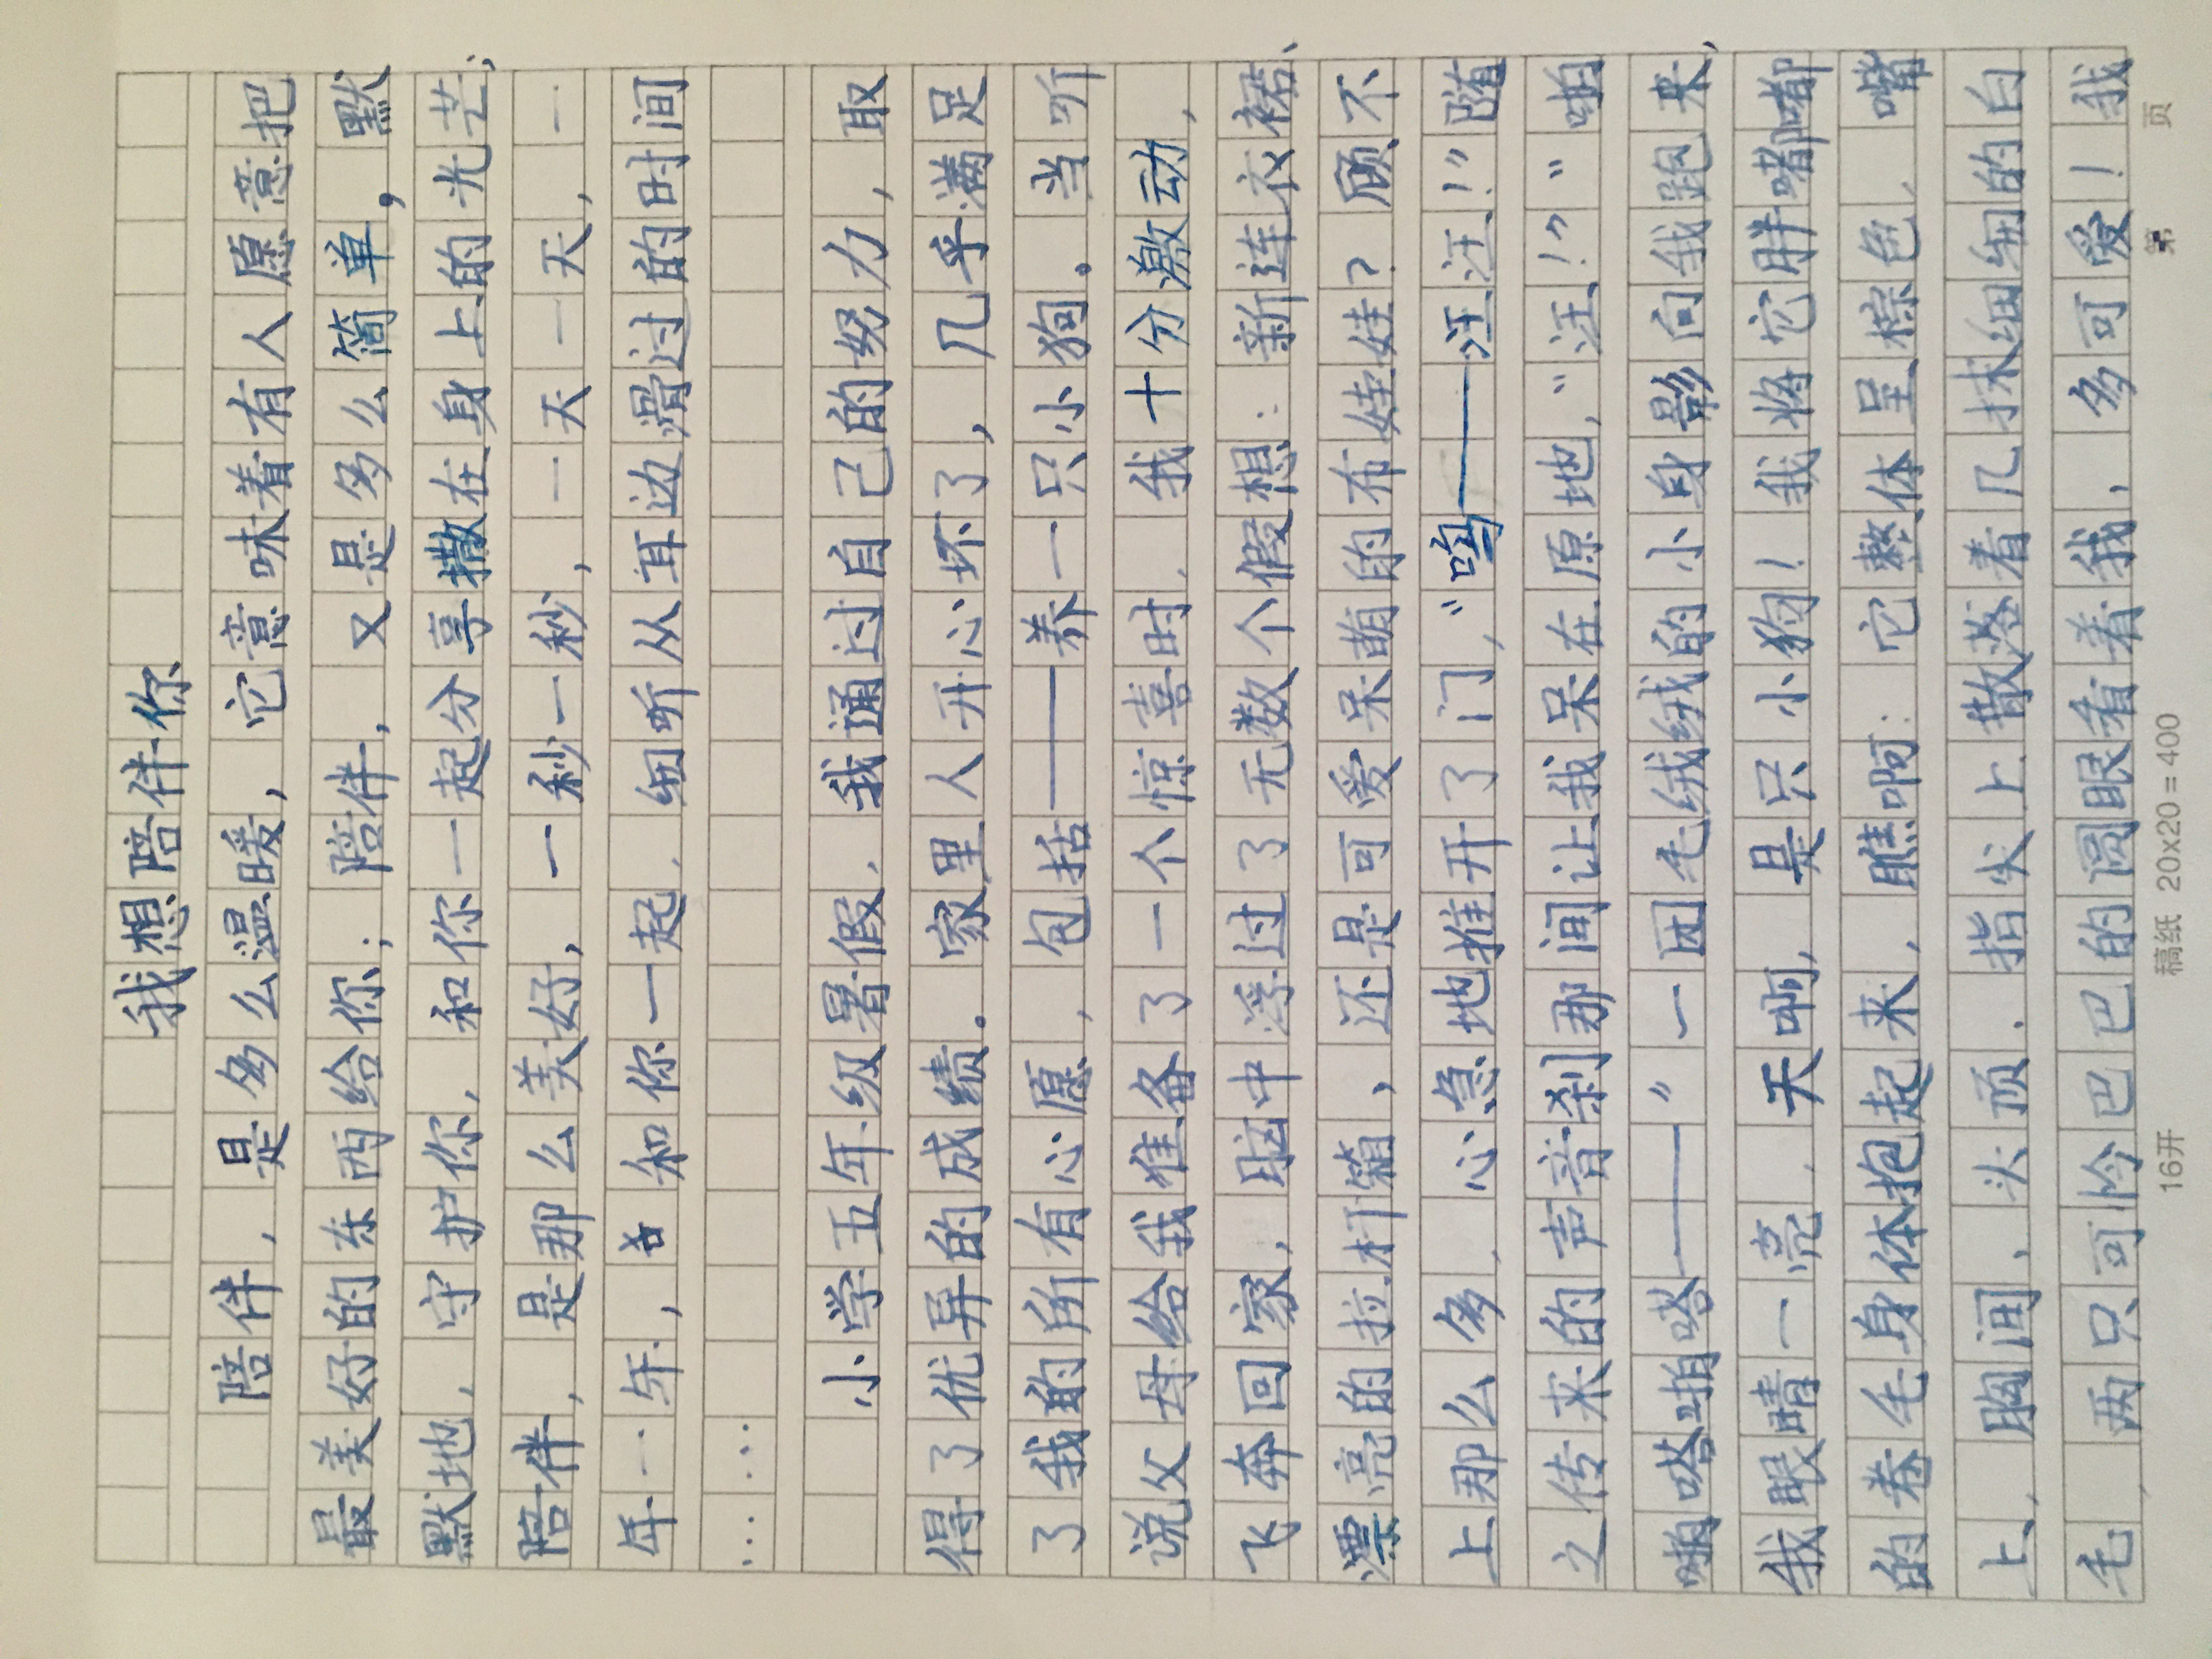 我想陪伴你
陪伴，是多么温暖，它意味着有人愿意把
最美好的东西给你；陪伴，又是多么简单，默
默地，守护你，和你一起分享撒在身上的光芒；
陪伴，是那么美好，一秒一秒，一天一天，一
年一年，和你一起，细听从耳边滑过的时间
……
小学五年级暑假，我通过自己的努力，取
得了优异的成绩。家里人开心坏了，几乎满足
了我的所有心愿，包括——养一只小狗。当听
说父母给我准备了一个惊喜时，我十分激动，
飞奔回家，脑中浮过了无数个假想：新连衣裙、
漂亮的拉杆箱、还是可爱呆萌的布娃娃？顾不
上那么多，心急地推开了门，“呜——汪汪！”随
之传来的声音刹那间让我呆在原地，“汪！”“啪
嗒啪嗒——”一团毛绒绒的小身影向我跑来，
我眼睛一亮，天啊，是只小狗！我将它胖嘟嘟
的卷毛身体抱起来，瞧啊：它整体呈棕色，嘴
上、胸间、头顶、指尖上散落着几抹细细的白
毛，两只可怜巴巴的圆眼看着我，多可爱！我
16开 稿纸 20x20=400 第 页